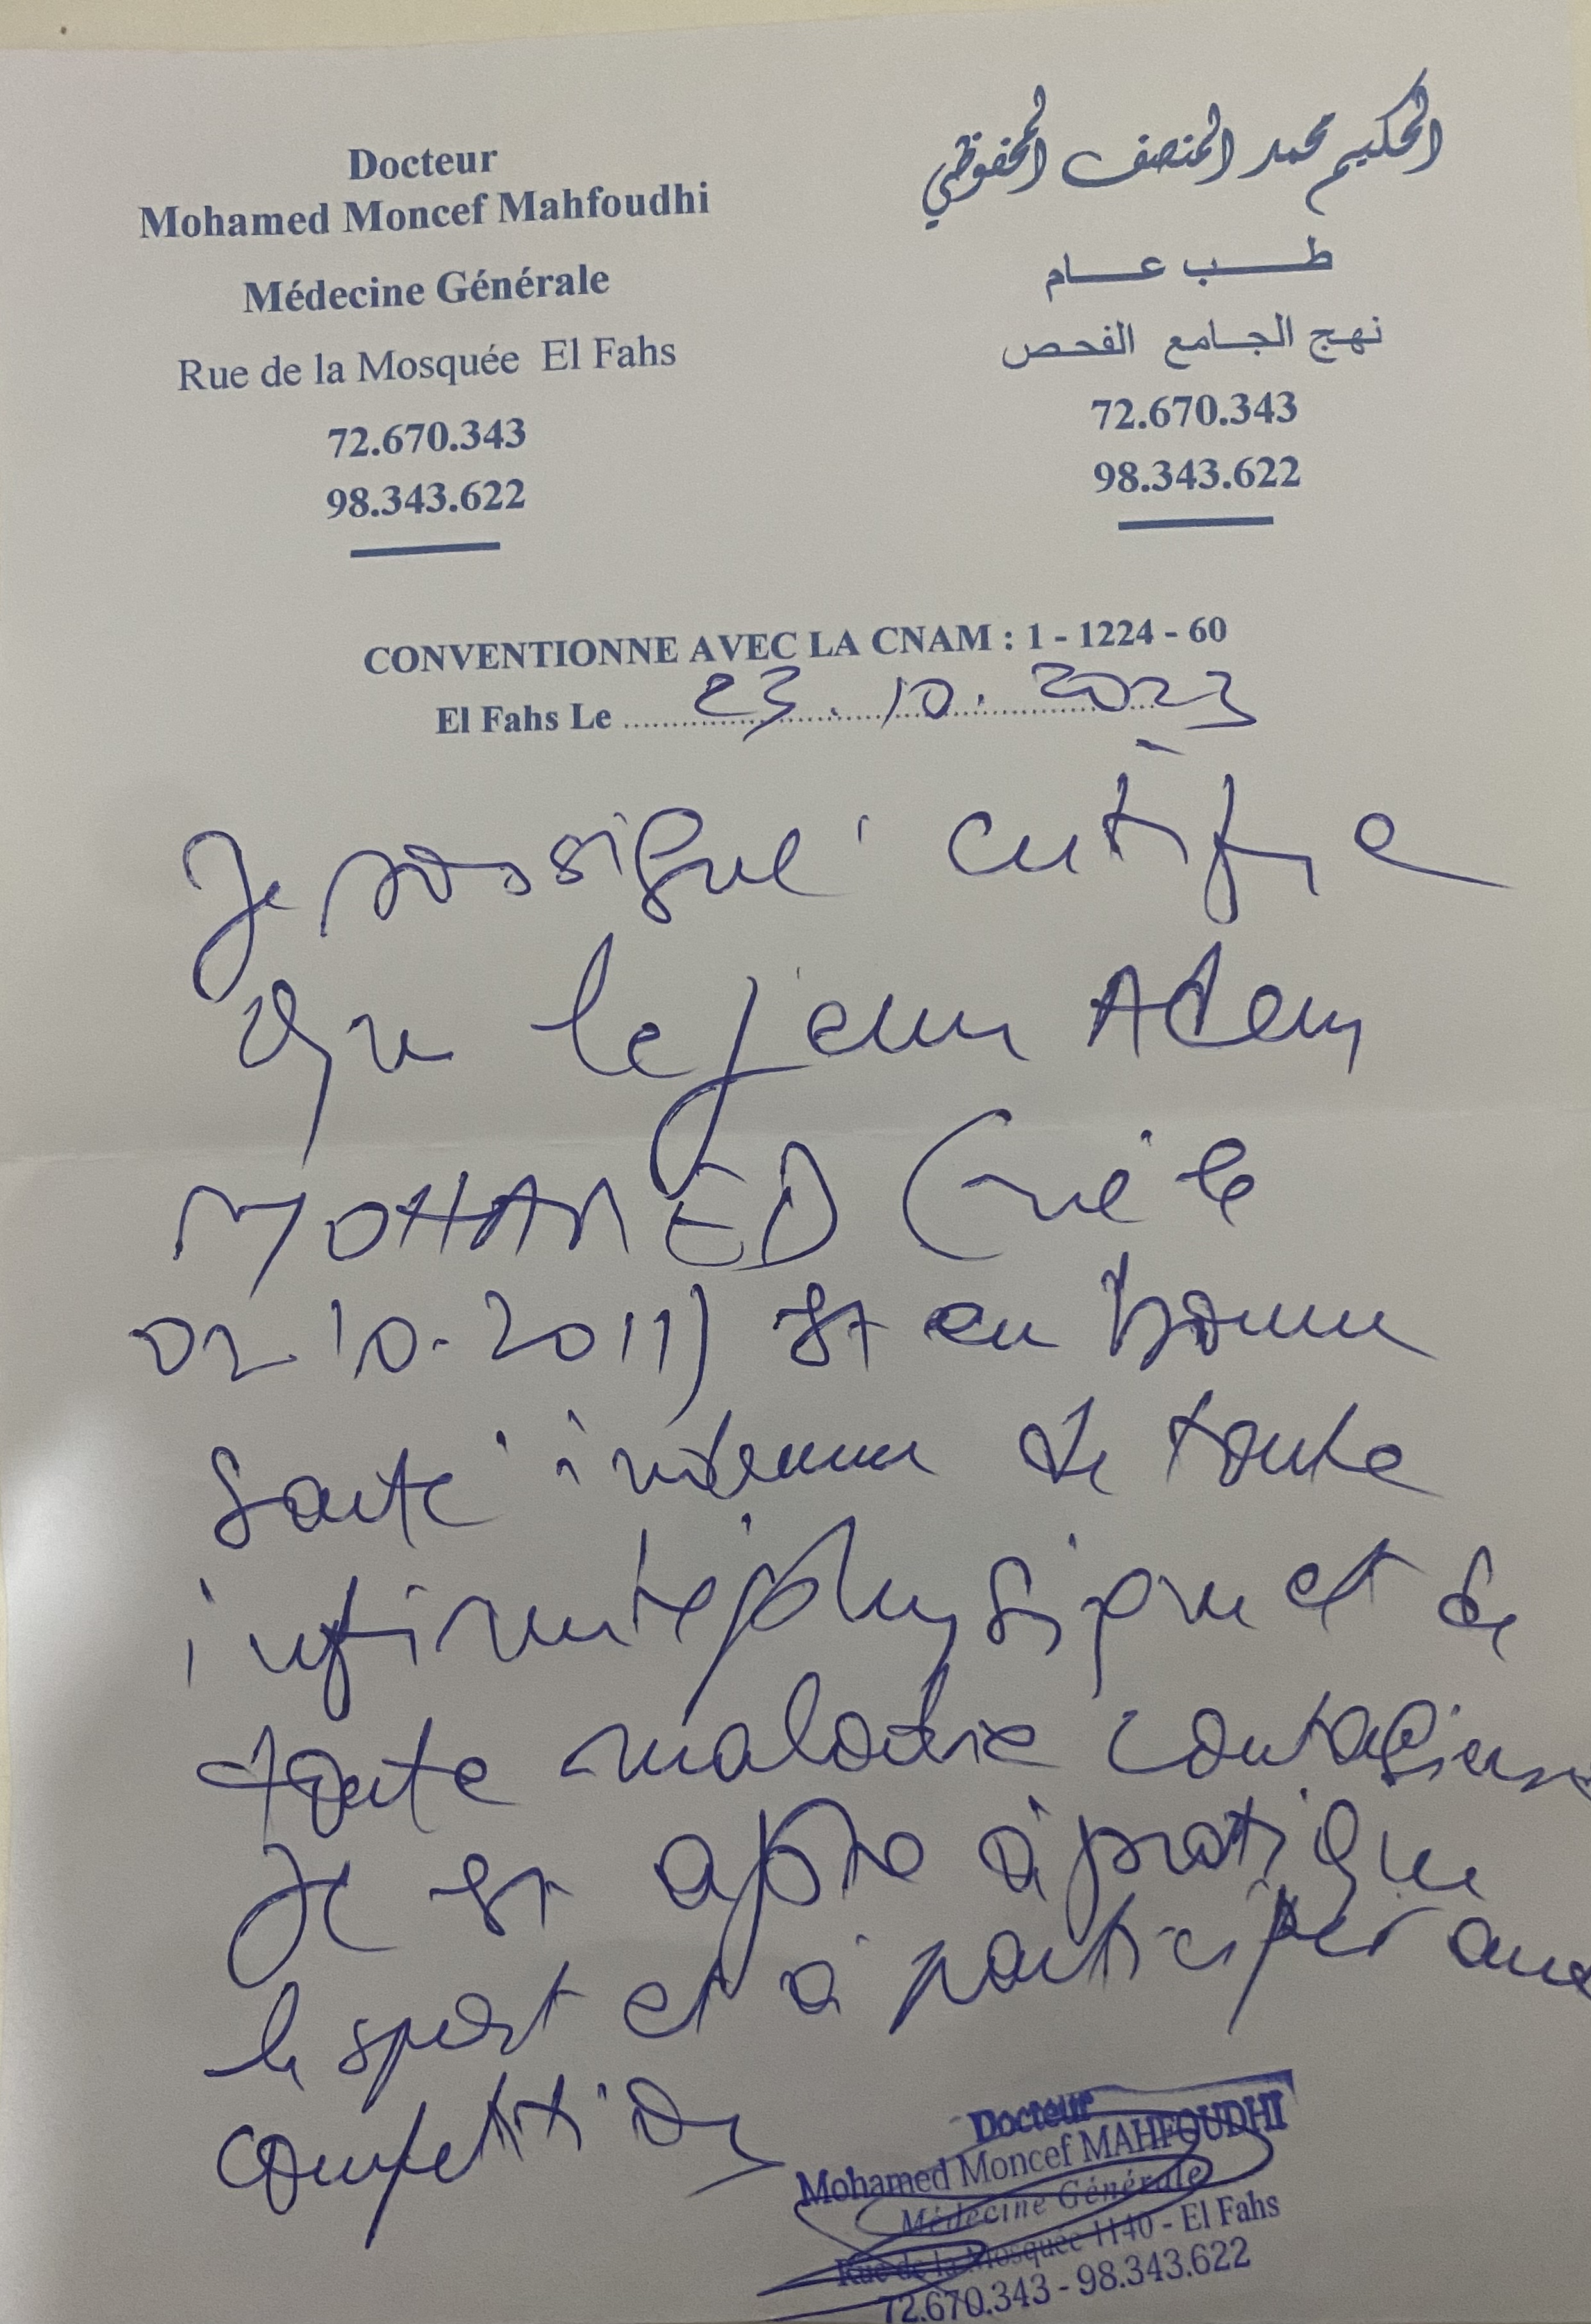 Docteur
Mohamed Moncef Mahfoudhi
Médecine Générale
Rue de la Mosquée El Fahs
72.670.343
98.343.622
الحكيم محمد المنصف المحفوظي
طب عام
نهج الجامع الفحص
72.670.343
98.343.622
CONVENTIONNE AVEC LA CNAM : 1 - 1224 - 60
El Fahs Le 23.10.2023
Je soussigné certifie
que le jeune Adem
MOHAMED (né le
02 10.2011) est en bonne
santé indemne de toute
infirmité physique et de
toute maladie contagieuse
Il est apte à pratiquer
le sport et à participer aux
compétitions
Docteur
Mohamed Moncef MAHFOUDHI
Médecine Générale
Rue de la Mosquée 1140 - El Fahs
72.670.343 - 98.343.622